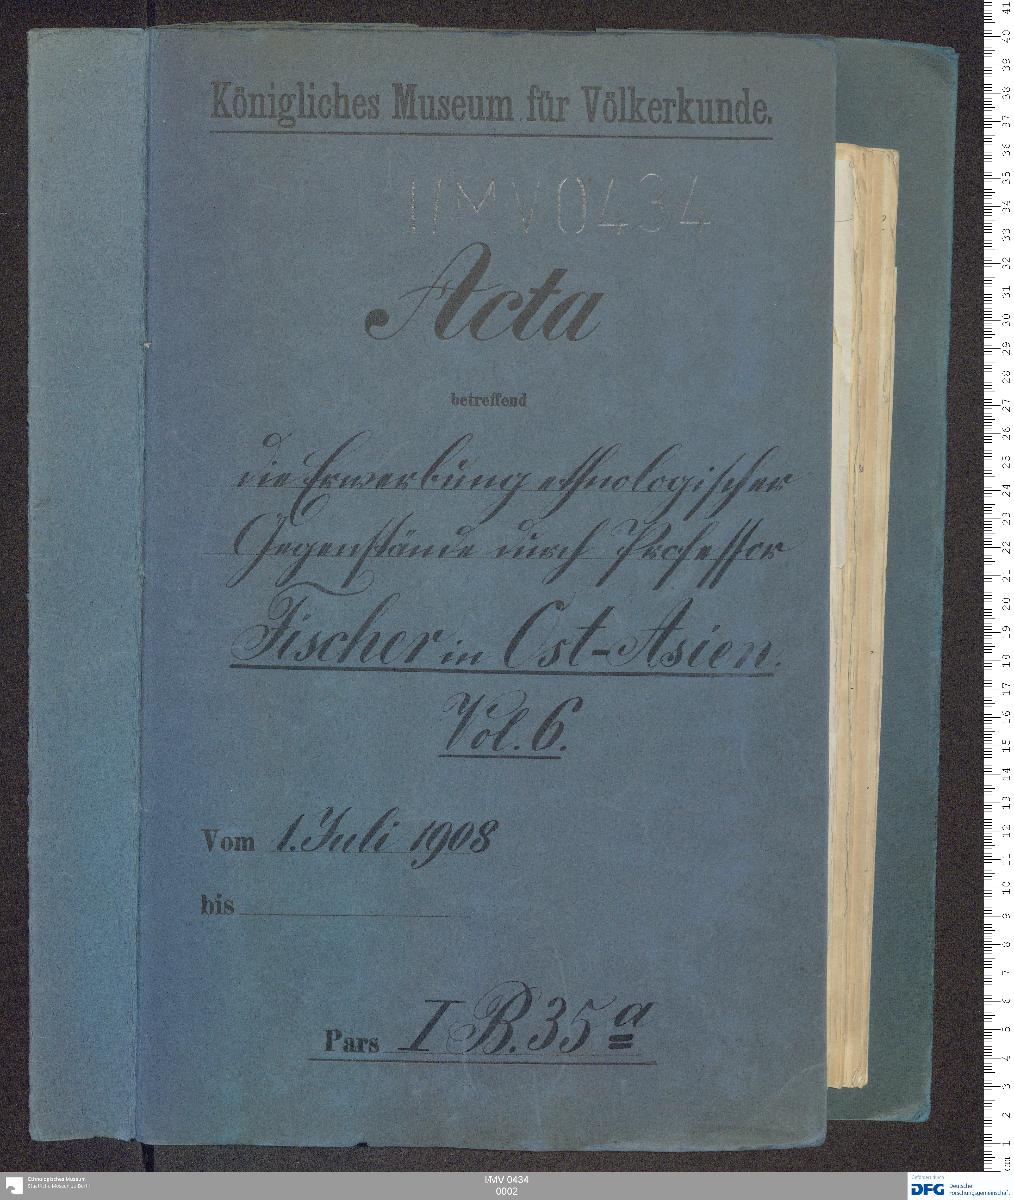 Königliches Museum für Völkerkunde.
I/MV 0434
Acta
betreffend
die Erwerbung ethnologischer
Gegenstände durch Professor
Fischer in Ost-Asien.
Vol. 6.
Vom 1. Juli 1908
bis
Pars I B. 35 a
41
40
39
38
37
36
35
34
33
32
31
30
29
28
27
26
25
24
23
22
21
20
19
18
17
16
15
14
13
12
11
10
9
8
7
6
5
4
3
2
1
cm
Ethnologisches Museum
Staatliche Museen zu Berlin
I/MV 0434
0002
Gefördert durch
DFG Deutsche
Forschungsgemeinschaft